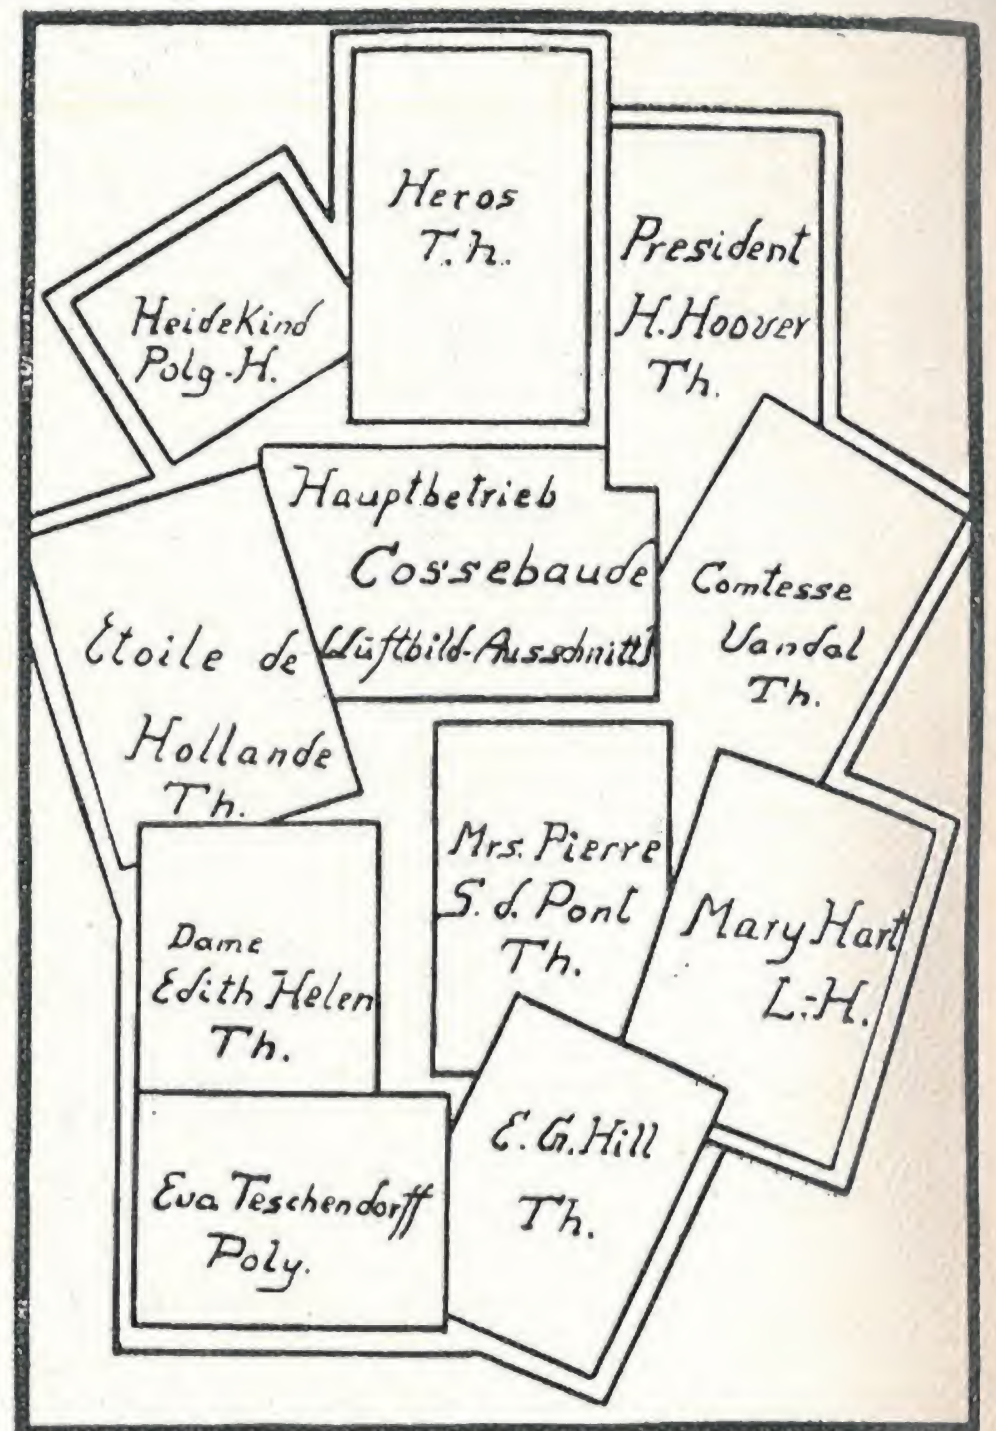 Heros
T.h.
President
H. Hoover
Th.
Heidekind
Polg-H.
Hauptbetrieb
Cossebaude
(Lüftbild-Ausschnitt)
Comtesse
Vandal
Th.
Etoile de
Hollande
Th.
Mrs. Pierre
S. d. Pont
Th.
Mary Hart
L.-H.
Dame
Edith Helen
Th.
E. G. Hill
Th.
Eva Teschendorff
Poly.